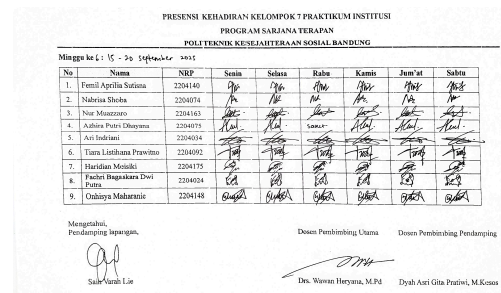 PRESENSI KEHADIRAN KELOMPOK 7 PRAKTIKUM INSTITUSI
PROGRAM SARJANA TERAPAN
POLITEKNIK KESEJAHTERAAN SOSIAL BANDUNG
Minggu ke 6: 15 - 20 September 2025
No Nama NRP Senin Selasa Rabu Kamis Jum'at Sabtu
1. Femil Aprilia Sutisna 2204140
2. Nabrisa Shoba 2204074
3. Nur Muazzaro 2204163
4. Azhira Putri Dhayana 2204075 Sakit
5. Ari Indriani 2204034
6. Tiara Listihana Prawitno 2204092
7. Haridian Meisiki 2204175
8. Fachri Bagaskara Dwi Putra 2204024
9. Onhisya Maharanie 2204148
Mengetahui,
Pendamping lapangan, Dosen Pembimbing Utama Dosen Pembimbing Pendamping
Varah Lie Drs. Wawan Heryana, M.Pd Dyah Asri Gita Pratiwi, M.Kesos